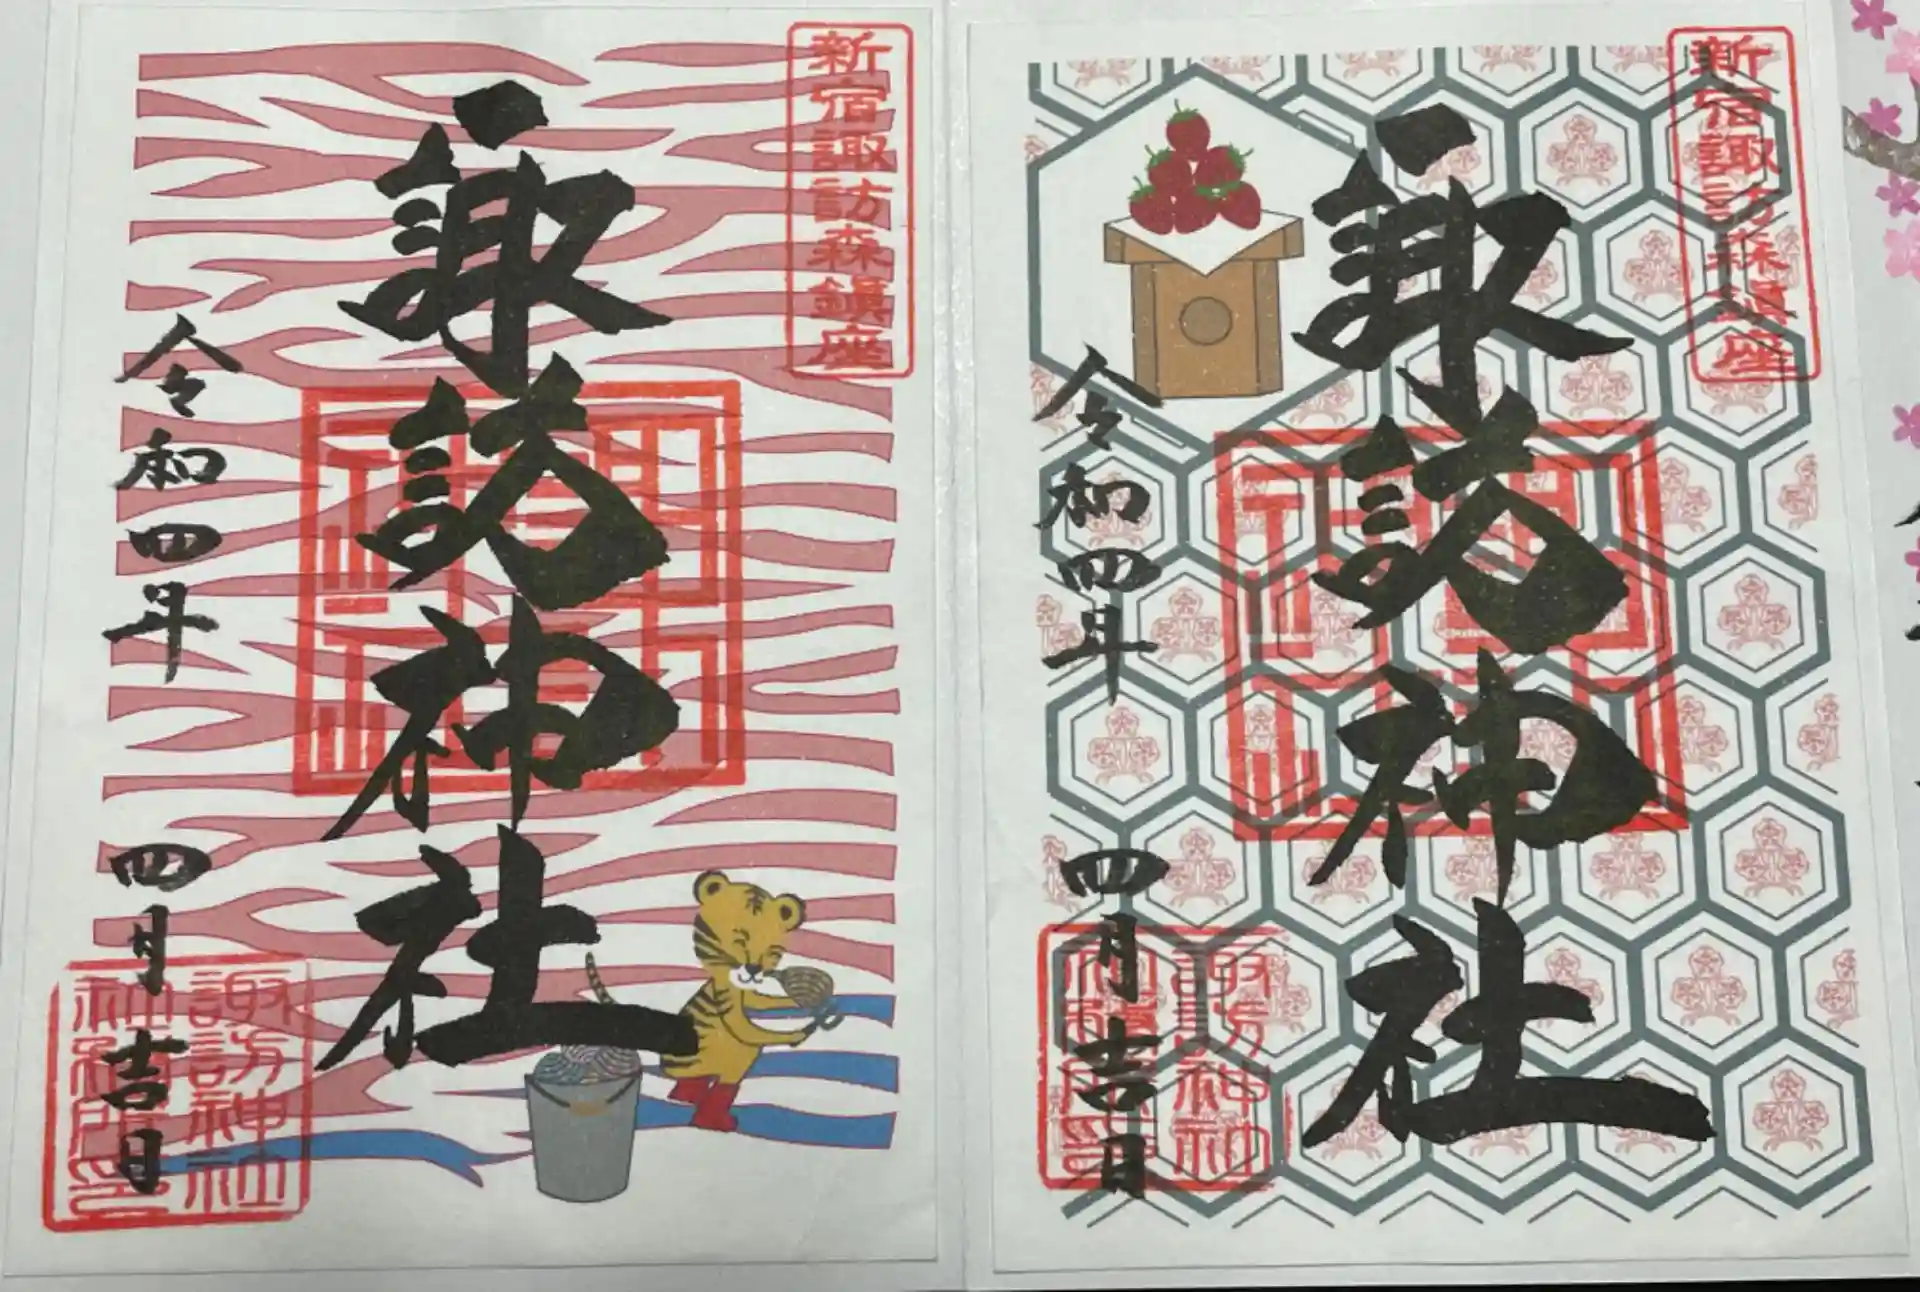 新宿諏訪森鎮座
諏訪神社
令和四年 四月吉日
諏訪神社
神璽所印
新宿諏訪森鎮座
諏訪神社
令和四年 四月吉日
諏訪神社
神璽所印